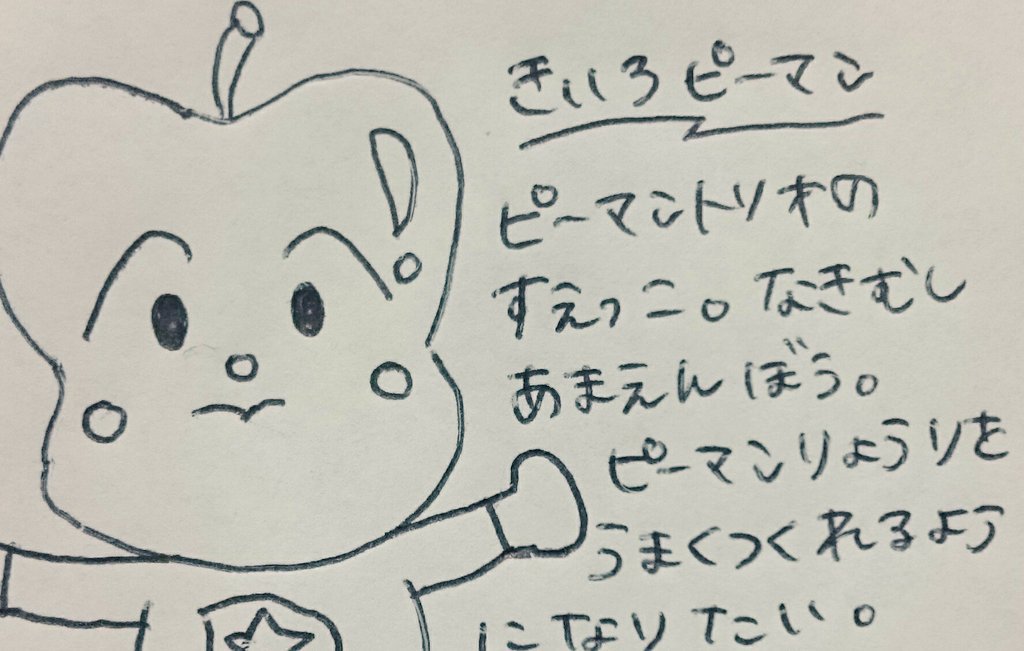 きいろピーマン
ピーマントリオの
すえっこ。なきむし
あまえんぼう。
ピーマンりょうりを
うまくつくれるよう
になりたい。